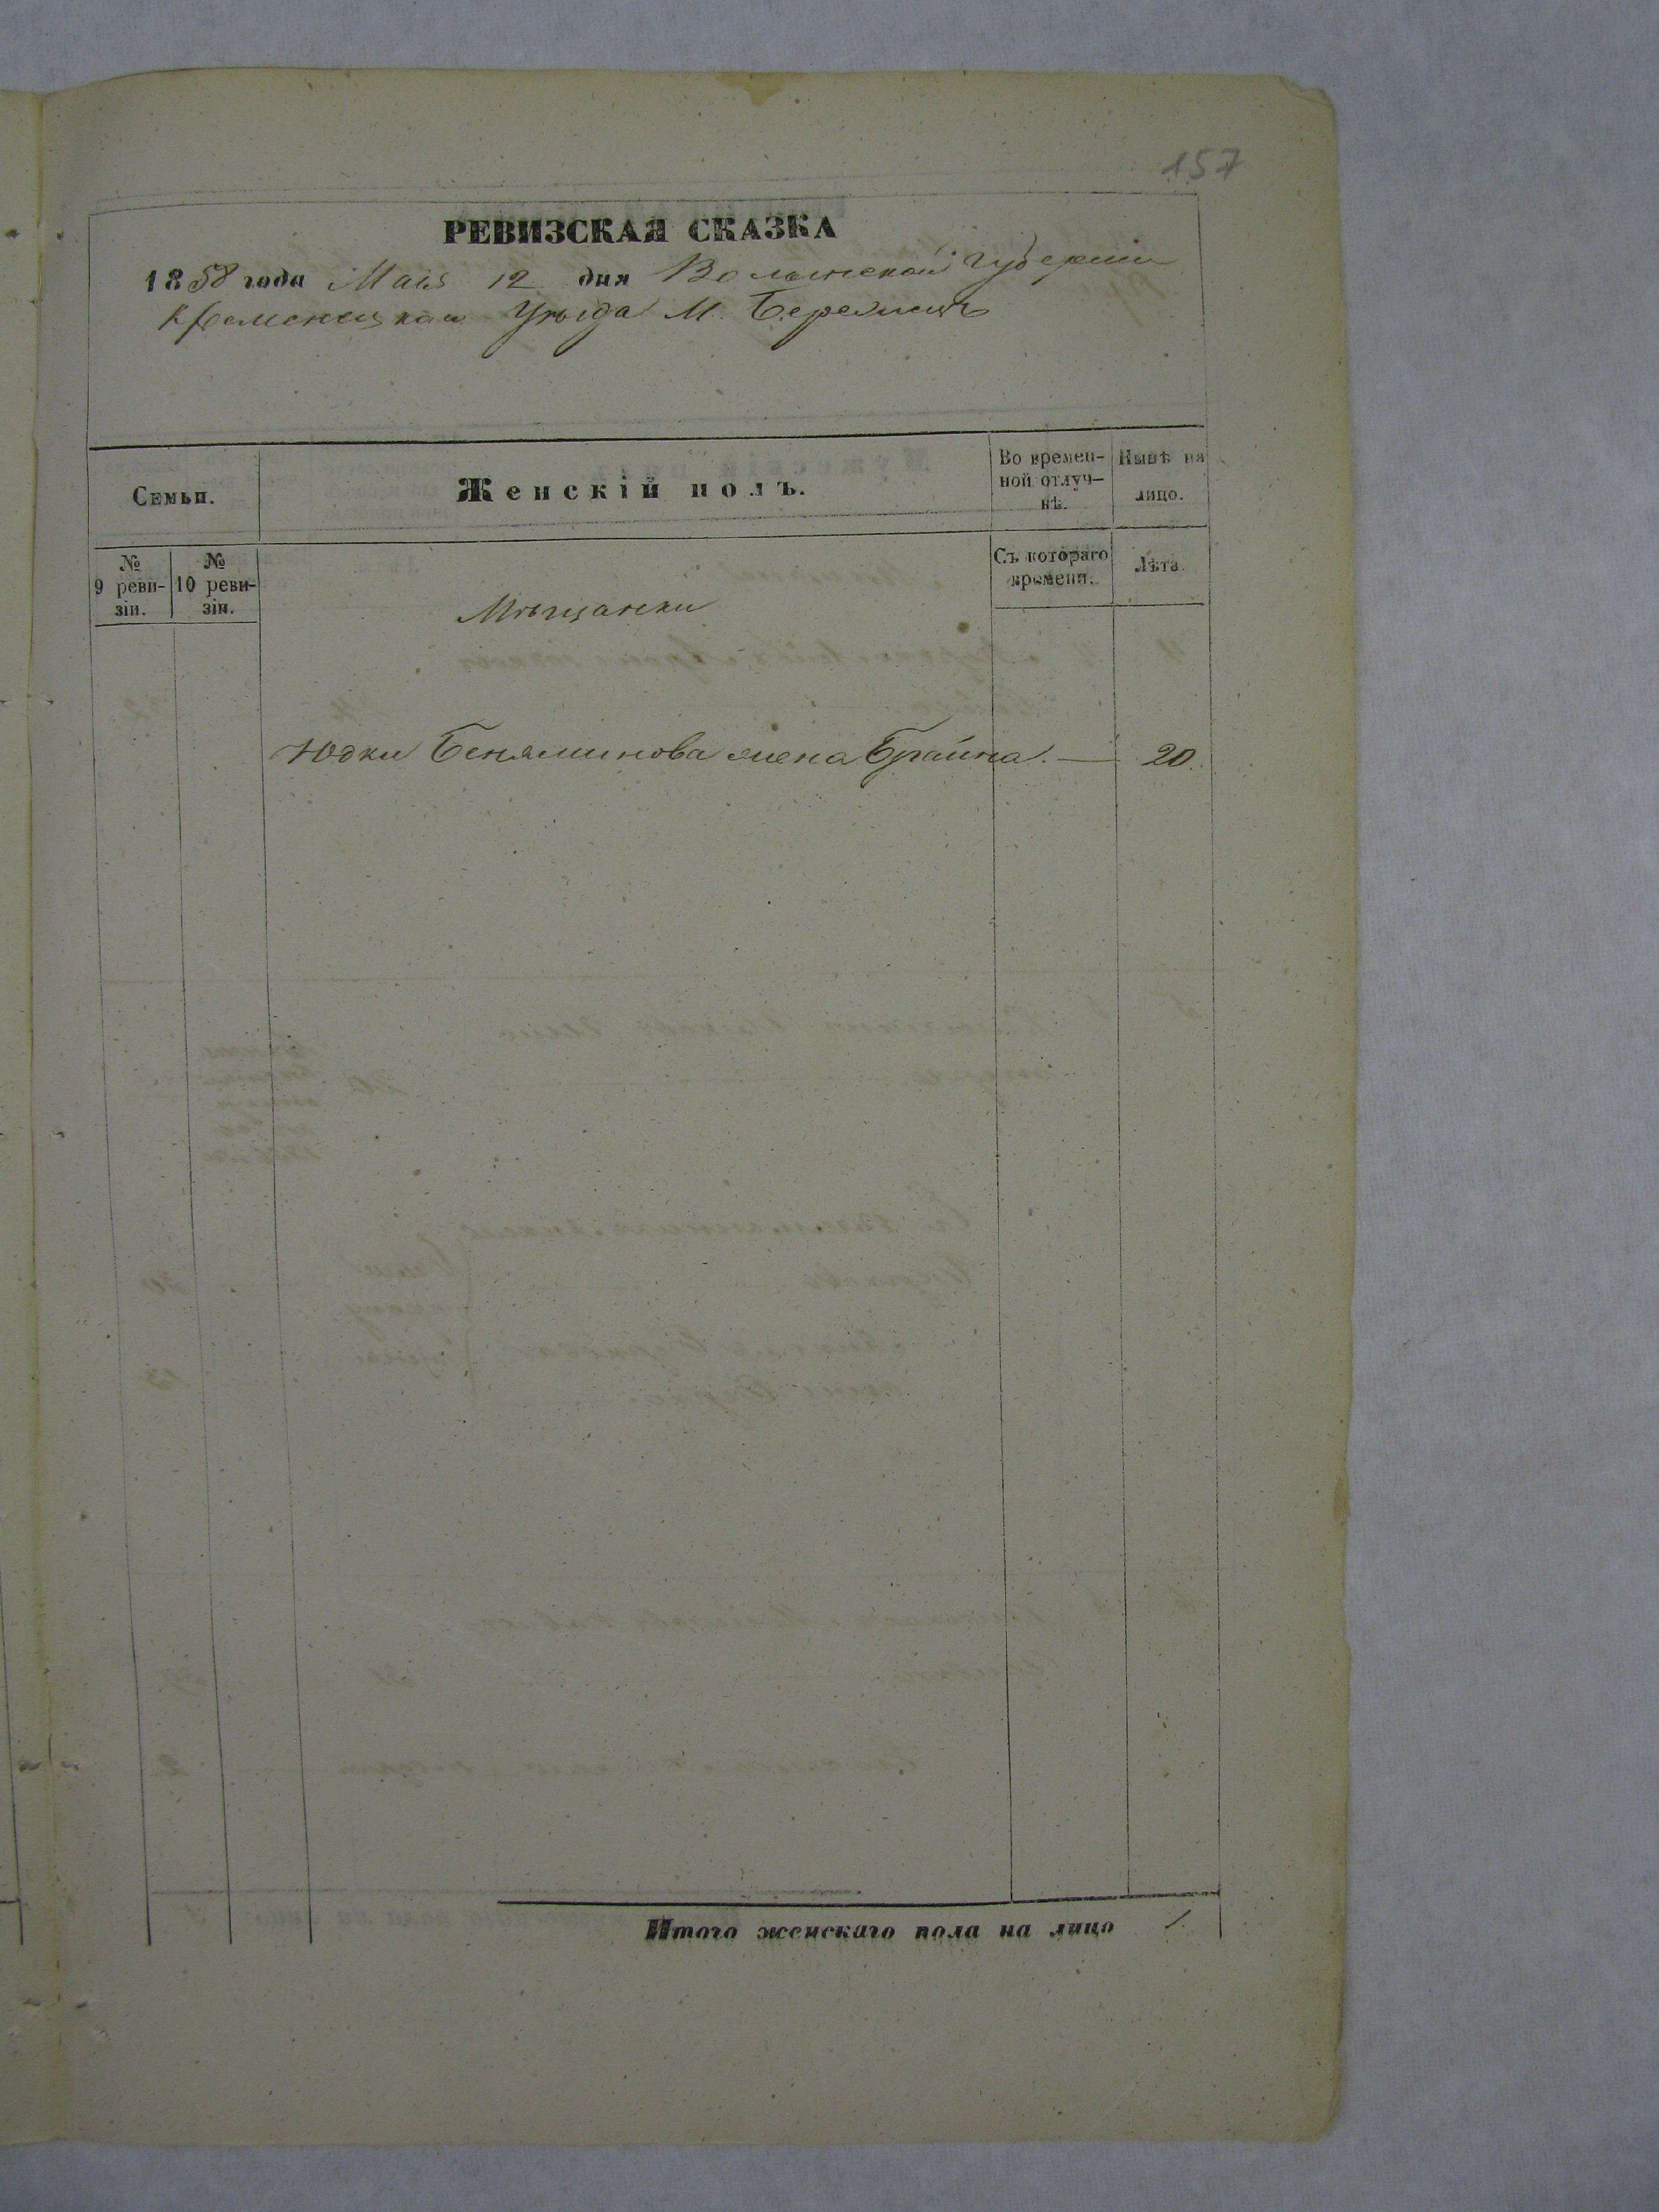 157
РЕВИЗСКАЯ СКАЗКА
1858 года Мая 12 дня Волынской Губернии
Кременецкаго Уѣзда М. Бережецъ
Семьи.
Женскій полъ.
Во времен-
ной отлуч-
кѣ.
Нынѣ на
лицо.
№
9 реви-
зіи.
№
10 реви-
зіи.
Съ котораго
времени.
Лѣта.
Мѣщанки
Юдки Беняминова жена Брайна. — 20.
Итого женскаго пола на лицо 1.